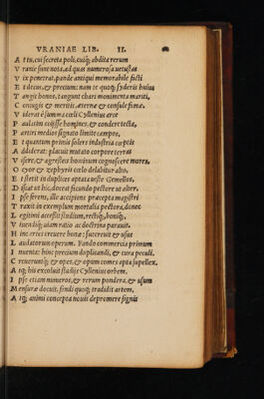 URANIAE LIB. II.
A t tu, cui secreta poli, cuiq; abdita rerum
V raniæ sunt nota, ad quæ numerosa uetustas
V ix penetrat, pande antiqui memorabile facti
E t decus, & precium: nam te quoq; syderis huius
T angit honos, tangunt chari monimenta mariti,
C oniugis & meritis æterna & consule fama.
V iderat è summa cœli Cyllenius arce
P aulatim coisse homines, & condere tecta,
P artiri medios signato limite campos,
E t quantum primis solers industria cœptis
A ddiderat: placuit mutato corpore terras
V isere, & agrestes hominum cognoscere mores,
O cyor & zephyris cœlo delabitur alto.
E t sterit in duplices aptatus ore Gemellos,
D iscat ut hic, doceat secundo pectore ut alter.
I pse ferens, ille accipiens præcepta magistri
T raxit in exemplum mortalia pectora, donec
L egitimi accessit studium, rectiq;, boniq;,
V iuendiq; uiam ratio ac doctrina parauit.
H inc ereci creuere bonæ: successit & usus
L audatorum operum. Pando commercia primum
I nuenta: hinc precium duplicandi, & cura peculi.
C reueruntq; & opes, & opum comes apta supellex.
A tq; his excoluit studijs Cyllenius orbem.
I pse etiam numeros, & rerum pondera, & usum
M ensuræ docuit, findi quoq; tradidit artem,
A tq; animi concepta nouis depromere signis